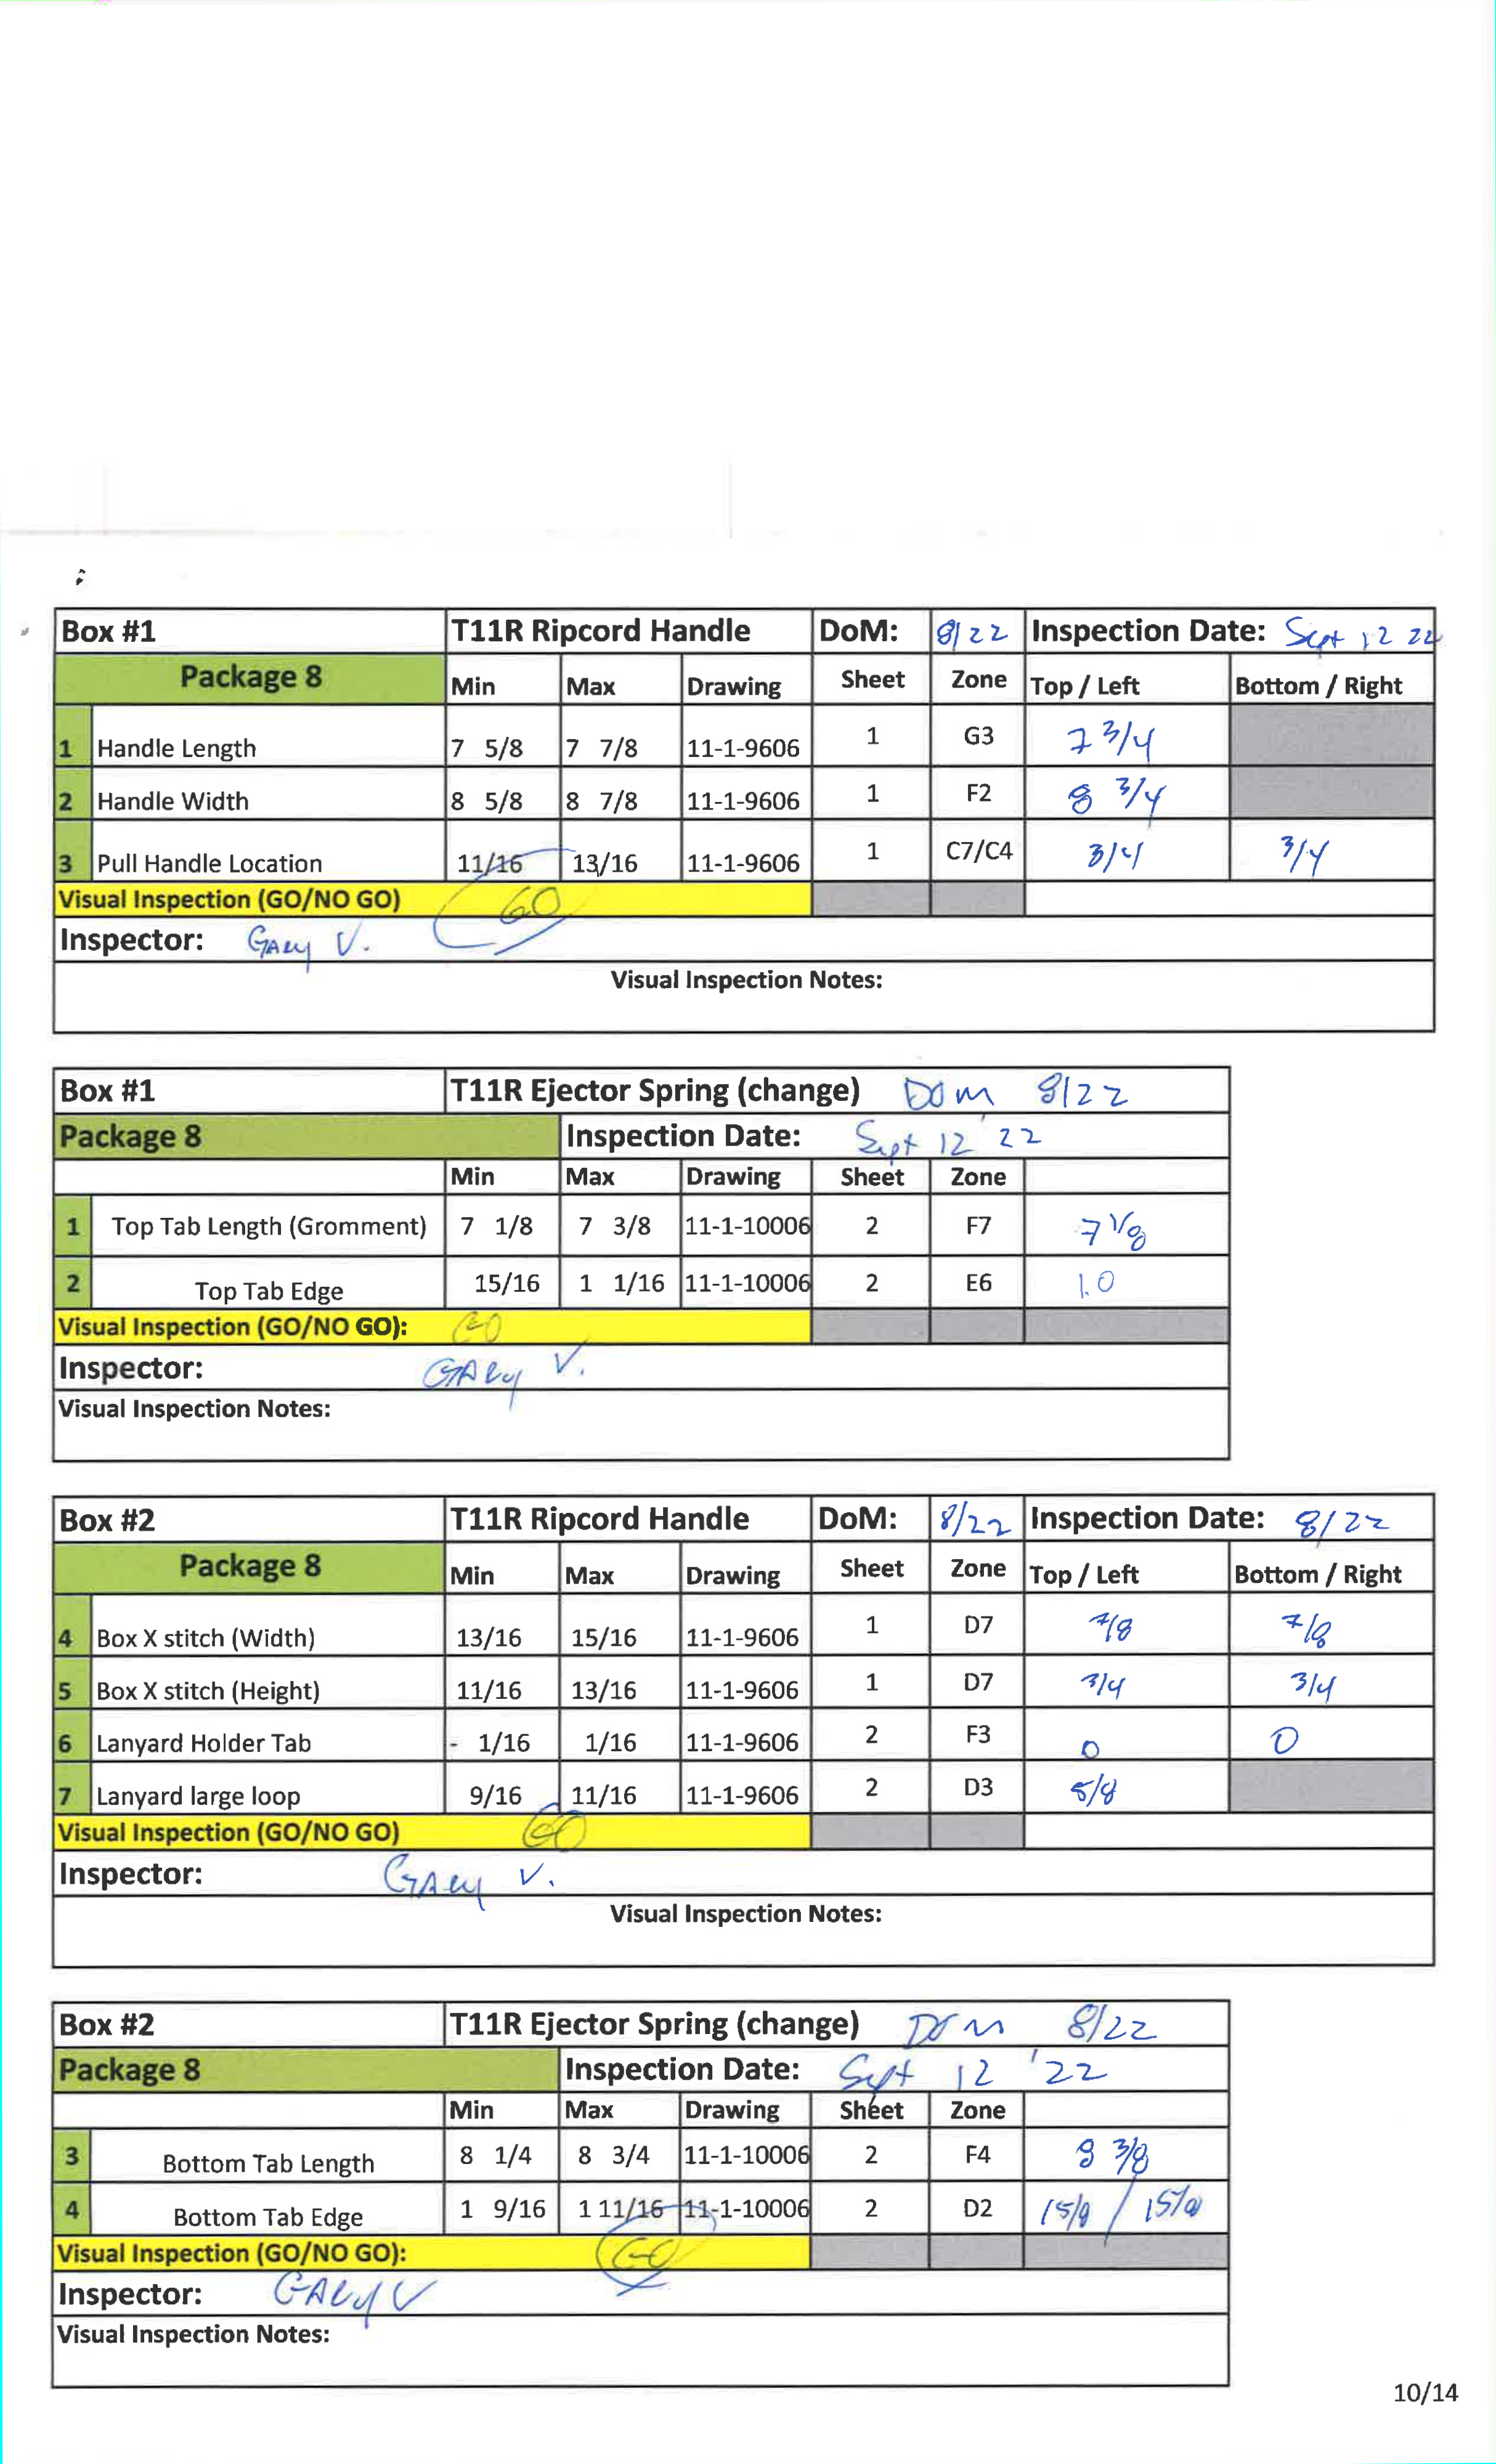 Box #1 T11R Ripcord Handle DoM: 8/22 Inspection Date: Sept 12 22
Package 8 Min Max Drawing Sheet Zone Top / Left Bottom / Right
1 Handle Length 7 5/8 7 7/8 11-1-9606 1 G3 7 3/4
2 Handle Width 8 5/8 8 7/8 11-1-9606 1 F2 8 3/4
3 Pull Handle Location 11/16 13/16 11-1-9606 1 C7/C4 3/4 3/4
Visual Inspection (GO/NO GO) GO
Inspector: GARY V.
Visual Inspection Notes:
Box #1 T11R Ejector Spring (change) DOM 8/22
Package 8 Inspection Date: Sept 12 '22
Min Max Drawing Sheet Zone
1 Top Tab Length (Gromment) 7 1/8 7 3/8 11-1-10006 2 F7 7 1/8
2 Top Tab Edge 15/16 1 1/16 11-1-10006 2 E6 1.0
Visual Inspection (GO/NO GO): GO
Inspector: GARY V.
Visual Inspection Notes:
Box #2 T11R Ripcord Handle DoM: 8/22 Inspection Date: 8/22
Package 8 Min Max Drawing Sheet Zone Top / Left Bottom / Right
4 Box X stitch (Width) 13/16 15/16 11-1-9606 1 D7 7/8 7/8
5 Box X stitch (Height) 11/16 13/16 11-1-9606 1 D7 3/4 3/4
6 Lanyard Holder Tab - 1/16 1/16 11-1-9606 2 F3 0 0
7 Lanyard large loop 9/16 11/16 11-1-9606 2 D3 5/8
Visual Inspection (GO/NO GO) GO
Inspector: GARY V.
Visual Inspection Notes:
Box #2 T11R Ejector Spring (change) DOM 8/22
Package 8 Inspection Date: Sept 12 '22
Min Max Drawing Sheet Zone
3 Bottom Tab Length 8 1/4 8 3/4 11-1-10006 2 F4 8 3/8
4 Bottom Tab Edge 1 9/16 1 11/16 11-1-10006 2 D2 1 5/8 / 1 5/8
Visual Inspection (GO/NO GO): GO
Inspector: GARY V
Visual Inspection Notes:
10/14